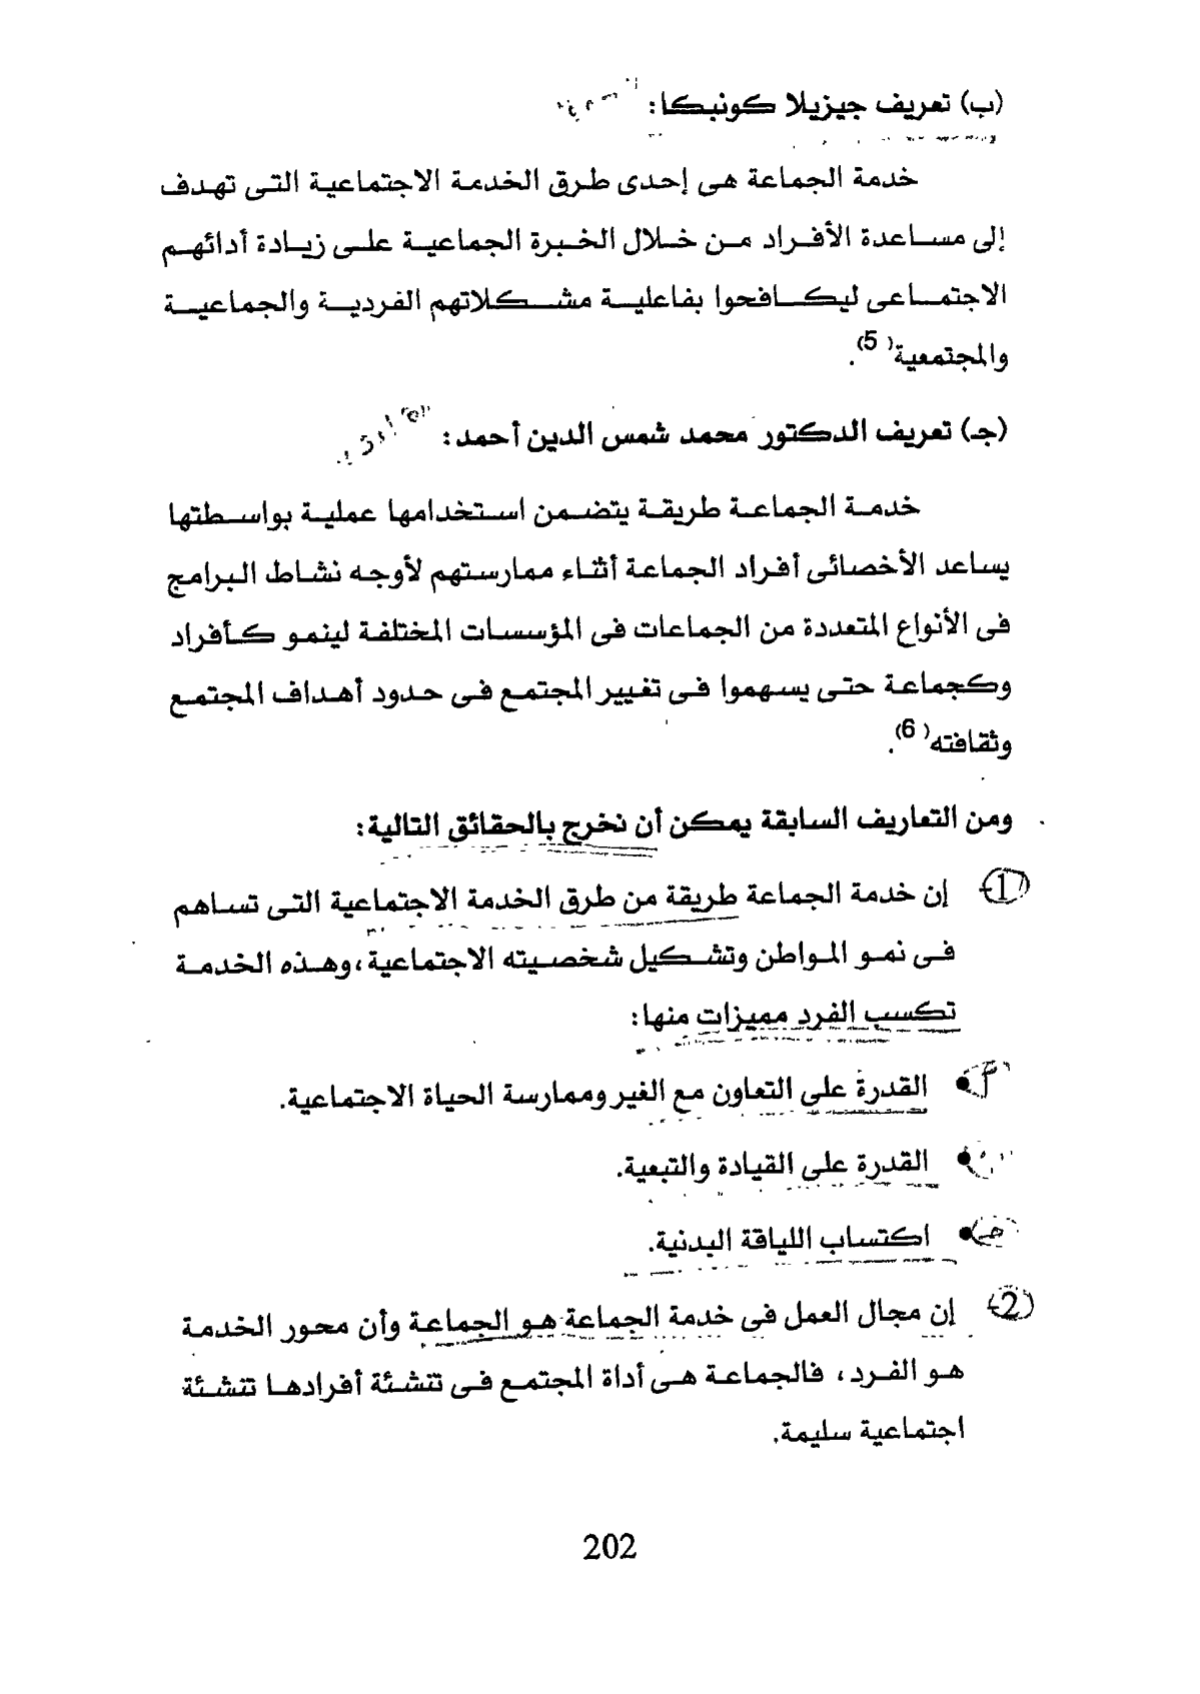 (ب) تعريف جيزيلا كونبكا:
خدمة الجماعة هى إحدى طرق الخدمة الاجتماعية التى تهدف
إلى مساعدة الأفراد من خلال الخبرة الجماعية على زيادة أدائهم
الاجتماعى ليكافحوا بفاعلية مشكلاتهم الفردية والجماعية
والمجتمعية(5).
(جـ) تعريف الدكتور محمد شمس الدين أحمد:
خدمة الجماعة طريقة يتضمن استخدامها عملية بواسطتها
يساعد الأخصائى أفراد الجماعة أثناء ممارستهم لأوجه نشاط البرامج
فى الأنواع المتعددة من الجماعات فى المؤسسات المختلفة لينمو كأفراد
وكجماعة حتى يسهموا فى تغيير المجتمع فى حدود أهداف المجتمع
وثقافته(6).
ومن التعاريف السابقة يمكن أن نخرج بالحقائق التالية:
1- إن خدمة الجماعة طريقة من طرق الخدمة الاجتماعية التى تساهم
فى نمو المواطن وتشكيل شخصيته الاجتماعية، وهذه الخدمة
تكسب الفرد مميزات منها:
أ • القدرة على التعاون مع الغير وممارسة الحياة الاجتماعية.
• القدرة على القيادة والتبعية.
جـ • اكتساب اللياقة البدنية.
2- إن مجال العمل فى خدمة الجماعة هو الجماعة وأن محور الخدمة
هو الفرد، فالجماعة هى أداة المجتمع فى تنشئة أفرادها تنشئة
اجتماعية سليمة.
202